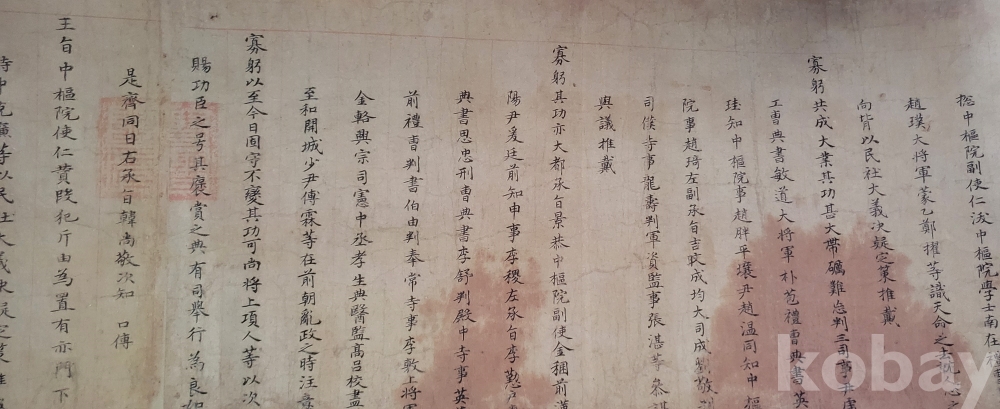 摠中樞院副使仁沃中樞院學士南在禮
趙璞大將軍蒙乙鄭擢等識天命之去就人心之
向皆以民社大義决疑定策推戴
寡躬共成大業其功甚大帶礪難忘判三司事尹虎
工曹典書敏道大將軍朴苞禮曹典書英
珪知中樞院事趙胖平壤尹趙温同知中樞
院事趙琦左副承旨吉旼成均大司成劉敬判
司僕寺事龍壽判軍資監事張湛等叅謀
與議推戴
寡躬其功亦大都承旨景恭中樞院副使金稛前漢
陽尹爰廷前知申事李稷左承旨李懃戶
典書思忠刑曹典書李舒判殿中寺事英
前禮曹判書伯由判奉常寺事李敷上將軍
金輅興宗司憲中丞孝生典醫監髙呂校書
至和開城少尹傅霖等在前朝亂政之時注意
寡躬以至今日固守不變其功可尚將上項人等以次
賜功臣之号其襃賞之典有司舉行為良如
是齊同日右承旨韓尚敬次知 口傳
王旨中樞院使仁贊段犯斤由為置有亦門下
侍中克廉等以民社大義决疑定策推
kobay